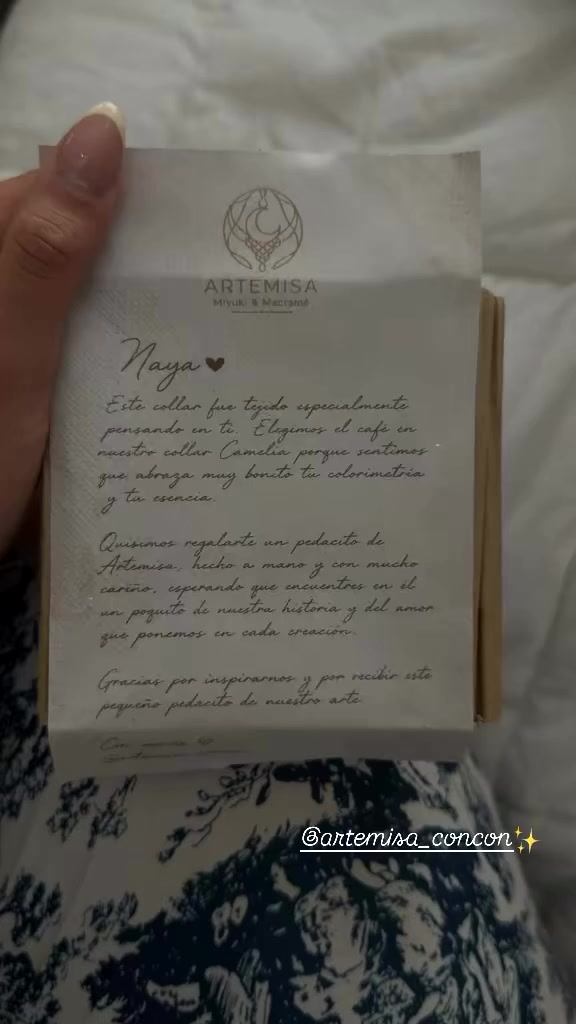 ARTEMISA
Miyuki & Macramé
Naya
Este collar fue tejido especialmente
pensando en ti. Elegimos el café en
nuestro collar Camelia porque sentimos
que abraza muy bonito tu colorimetría
y tu esencia.
Quisimos regalarte un pedacito de
Artemisa, hecho a mano y con mucho
cariño, esperando que encuentres en él
un poquito de nuestra historia y del amor
que ponemos en cada creación.
Gracias por inspirarnos y por recibir este
pequeño pedacito de nuestro arte
@artemisa_concon✨